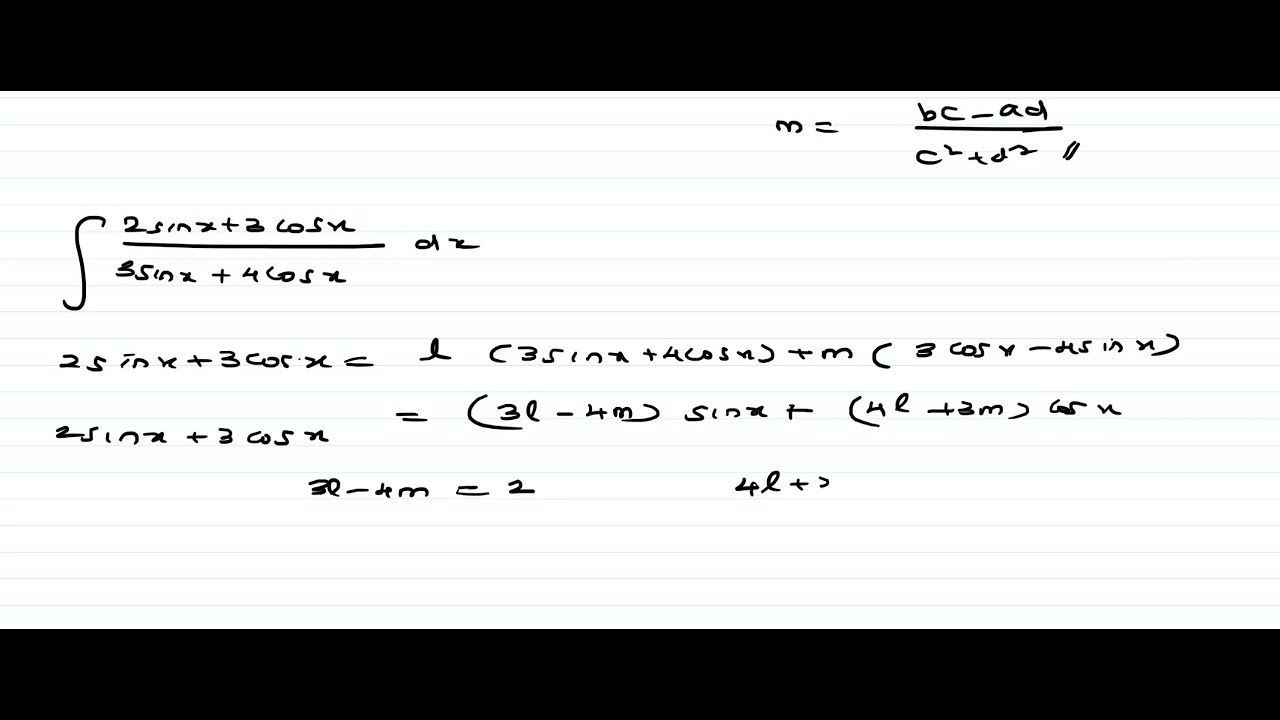 m = \frac{bc - ad}{c² + d²} //
∫ \frac{2sinx + 3cosx}{3sinx + 4cosx} dx
2sinx + 3cosx = l (3sinx + 4cosx) + m (3cosx - 4sinx)
2sinx + 3cosx = (3l - 4m) sinx + (4l + 3m) cosx
3l - 4m = 2 4l +